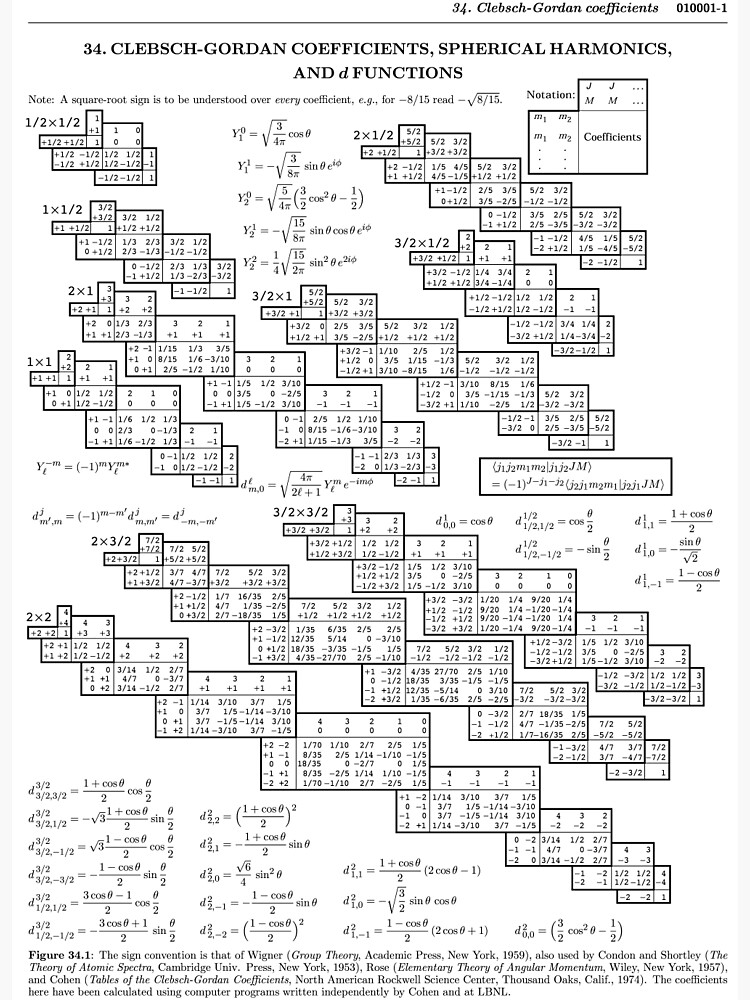 34. Clebsch-Gordan coefficients 010001-1
34. CLEBSCH-GORDAN COEFFICIENTS, SPHERICAL HARMONICS,
AND d FUNCTIONS
Note: A square-root sign is to be understood over every coefficient, e.g., for −8/15 read −√8/15.
Notation:
J J ...
M M ...
m₁ m₂
m₁ m₂ Coefficients
. .
. .
. .
1/2×1/2
1
+1 1 0
+1/2 +1/2 1 0 0
+1/2 −1/2 1/2 1/2 1
−1/2 +1/2 1/2 −1/2 −1
−1/2 −1/2 1
Y₁⁰ = √(3/4π) cos θ
Y₁¹ = −√(3/8π) sin θ e^{iϕ}
Y₂⁰ = √(5/4π) (3/2 cos² θ − 1/2)
Y₂¹ = −√(15/8π) sin θ cos θ e^{iϕ}
Y₂² = 1/4 √(15/2π) sin² θ e^{2iϕ}
2×1/2
5/2
+5/2 5/2 3/2
+2 +1/2 1 +3/2 +3/2
+2 −1/2 1/5 4/5 5/2 3/2
+1 +1/2 4/5 −1/5 +1/2 +1/2
+1 −1/2 2/5 3/5 5/2 3/2
0 +1/2 3/5 −2/5 −1/2 −1/2
0 −1/2 3/5 2/5 5/2 3/2
−1 +1/2 2/5 −3/5 −3/2 −3/2
−1 −1/2 4/5 1/5 5/2
−2 +1/2 1/5 −4/5 −5/2
−2 −1/2 1
1×1/2
3/2
+3/2 3/2 1/2
+1 +1/2 1 +1/2 +1/2
+1 −1/2 1/3 2/3 3/2 1/2
0 +1/2 2/3 −1/3 −1/2 −1/2
0 −1/2 2/3 1/3 3/2
−1 +1/2 1/3 −2/3 −3/2
−1 −1/2 1
3/2×1/2
2
+2 2 1
+3/2 +1/2 1 +1 +1
+3/2 −1/2 1/4 3/4 2 1
+1/2 +1/2 3/4 −1/4 0 0
+1/2 −1/2 1/2 1/2 2 1
−1/2 +1/2 1/2 −1/2 −1 −1
−1/2 −1/2 3/4 1/4 2
−3/2 +1/2 1/4 −3/4 −2
−3/2 −1/2 1
2×1
3
+3 3 2
+2 +1 1 +2 +2
+2 0 1/3 2/3 3 2 1
+1 +1 2/3 −1/3 +1 +1 +1
+2 −1 1/15 1/3 3/5
+1 0 8/15 1/6 −3/10 3 2 1
0 +1 2/5 −1/2 1/10 0 0 0
+1 −1 1/5 1/2 3/10
0 0 3/5 0 −2/5 3 2 1
−1 +1 1/5 −1/2 3/10 −1 −1 −1
0 −1 2/5 1/2 1/10
−1 0 8/15 −1/6 −3/10 3 2
−2 +1 1/15 −1/3 3/5 −2 −2
−1 −1 2/3 1/3 3
−2 0 1/3 −2/3 −3
−2 −1 1
3/2×1
5/2
+5/2 5/2 3/2
+3/2 +1 1 +3/2 +3/2
+3/2 0 2/5 3/5 5/2 3/2 1/2
+1/2 +1 3/5 −2/5 +1/2 +1/2 +1/2
+3/2 −1 1/10 2/5 1/2
+1/2 0 3/5 1/15 −1/3 5/2 3/2 1/2
−1/2 +1 3/10 −8/15 1/6 −1/2 −1/2 −1/2
+1/2 −1 3/10 8/15 1/6
−1/2 0 3/5 −1/15 −1/3 5/2 3/2
−3/2 +1 1/10 −2/5 1/2 −3/2 −3/2
−1/2 −1 3/5 2/5 5/2
−3/2 0 2/5 −3/5 −5/2
−3/2 −1 1
1×1
2
+2 2 1
+1 +1 1 +1 +1
+1 0 1/2 1/2 2 1 0
0 +1 1/2 −1/2 0 0 0
+1 −1 1/6 1/2 1/3
0 0 2/3 0 −1/3 2 1
−1 +1 1/6 −1/2 1/3 −1 −1
0 −1 1/2 1/2 2
−1 0 1/2 −1/2 −2
−1 −1 1
Y_ℓ^{−m} = (−1)^m Y_ℓ^{m*}
d^ℓ_{m,0} = √(4π/(2ℓ+1)) Y_ℓ^m e^{−imϕ}
⟨j₁j₂m₁m₂|j₁j₂JM⟩
= (−1)^{J−j₁−j₂}⟨j₂j₁m₂m₁|j₂j₁JM⟩
d^j_{m′,m} = (−1)^{m−m′} d^j_{m,m′} = d^j_{−m,−m′}
3/2×3/2
3
+3 3 2
+3/2 +3/2 1 +2 +2
+3/2 +1/2 1/2 1/2 3 2 1
+1/2 +3/2 1/2 −1/2 +1 +1 +1
+3/2 −1/2 1/5 1/2 3/10
+1/2 +1/2 3/5 0 −2/5 3 2 1 0
−1/2 +3/2 1/5 −1/2 3/10 0 0 0 0
+3/2 −3/2 1/20 1/4 9/20 1/4
+1/2 −1/2 9/20 1/4 −1/20 −1/4
−1/2 +1/2 9/20 −1/4 −1/20 1/4 3 2 1
−3/2 +3/2 1/20 −1/4 9/20 −1/4 −1 −1 −1
+1/2 −3/2 1/5 1/2 3/10
−1/2 −1/2 3/5 0 −2/5 3 2
−3/2 +1/2 1/5 −1/2 3/10 −2 −2
−1/2 −3/2 1/2 1/2 3
−3/2 −1/2 1/2 −1/2 −3
−3/2 −3/2 1
d¹_{0,0} = cos θ
d^{1/2}_{1/2,1/2} = cos θ/2
d^{1/2}_{1/2,−1/2} = − sin θ/2
d¹_{1,1} = (1 + cos θ)/2
d¹_{1,0} = − sin θ/√2
d¹_{1,−1} = (1 − cos θ)/2
2×3/2
7/2
+7/2 7/2 5/2
+2 +3/2 1 +5/2 +5/2
+2 +1/2 3/7 4/7 7/2 5/2 3/2
+1 +3/2 4/7 −3/7 +3/2 +3/2 +3/2
+2 −1/2 1/7 16/35 2/5
+1 +1/2 4/7 1/35 −2/5 7/2 5/2 3/2 1/2
0 +3/2 2/7 −18/35 1/5 +1/2 +1/2 +1/2 +1/2
+2 −3/2 1/35 6/35 2/5 2/5
+1 −1/2 12/35 5/14 0 −3/10
0 +1/2 18/35 −3/35 −1/5 1/5 7/2 5/2 3/2 1/2
−1 +3/2 4/35 −27/70 2/5 −1/10 −1/2 −1/2 −1/2 −1/2
+1 −3/2 4/35 27/70 2/5 1/10
0 −1/2 18/35 3/35 −1/5 −1/5
−1 +1/2 12/35 −5/14 0 3/10 7/2 5/2 3/2
−2 +3/2 1/35 −6/35 2/5 −2/5 −3/2 −3/2 −3/2
0 −3/2 2/7 18/35 1/5
−1 −1/2 4/7 −1/35 −2/5 7/2 5/2
−2 +1/2 1/7 −16/35 2/5 −5/2 −5/2
−1 −3/2 4/7 3/7 7/2
−2 −1/2 3/7 −4/7 −7/2
−2 −3/2 1
2×2
4
+4 4 3
+2 +2 1 +3 +3
+2 +1 1/2 1/2 4 3 2
+1 +2 1/2 −1/2 +2 +2 +2
+2 0 3/14 1/2 2/7
+1 +1 4/7 0 −3/7 4 3 2 1
0 +2 3/14 −1/2 2/7 +1 +1 +1 +1
+2 −1 1/14 3/10 3/7 1/5
+1 0 3/7 1/5 −1/14 −3/10
0 +1 3/7 −1/5 −1/14 3/10 4 3 2 1 0
−1 +2 1/14 −3/10 3/7 −1/5 0 0 0 0 0
+2 −2 1/70 1/10 2/7 2/5 1/5
+1 −1 8/35 2/5 1/14 −1/10 −1/5
0 0 18/35 0 −2/7 0 1/5
−1 +1 8/35 −2/5 1/14 1/10 −1/5 4 3 2 1
−2 +2 1/70 −1/10 2/7 −2/5 1/5 −1 −1 −1 −1
+1 −2 1/14 3/10 3/7 1/5
0 −1 3/7 1/5 −1/14 −3/10
−1 0 3/7 −1/5 −1/14 3/10 4 3 2
−2 +1 1/14 −3/10 3/7 −1/5 −2 −2 −2
0 −2 3/14 1/2 2/7
−1 −1 4/7 0 −3/7 4 3
−2 0 3/14 −1/2 2/7 −3 −3
−1 −2 1/2 1/2 4
−2 −1 1/2 −1/2 −4
−2 −2 1
d^{3/2}_{3/2,3/2} = (1 + cos θ)/2 cos θ/2
d^{3/2}_{3/2,1/2} = −√3 (1 + cos θ)/2 sin θ/2
d^{3/2}_{3/2,−1/2} = √3 (1 − cos θ)/2 cos θ/2
d^{3/2}_{3/2,−3/2} = − (1 − cos θ)/2 sin θ/2
d^{3/2}_{1/2,1/2} = (3 cos θ − 1)/2 cos θ/2
d^{3/2}_{1/2,−1/2} = − (3 cos θ + 1)/2 sin θ/2
d²_{2,2} = ((1 + cos θ)/2)²
d²_{2,1} = − (1 + cos θ)/2 sin θ
d²_{2,0} = √6/4 sin² θ
d²_{2,−1} = − (1 − cos θ)/2 sin θ
d²_{2,−2} = ((1 − cos θ)/2)²
d²_{1,1} = (1 + cos θ)/2 (2 cos θ − 1)
d²_{1,0} = −√(3/2) sin θ cos θ
d²_{1,−1} = (1 − cos θ)/2 (2 cos θ + 1)
d²_{0,0} = (3/2 cos² θ − 1/2)
Figure 34.1: The sign convention is that of Wigner (Group Theory, Academic Press, New York, 1959), also used by Condon and Shortley (The
Theory of Atomic Spectra, Cambridge Univ. Press, New York, 1953), Rose (Elementary Theory of Angular Momentum, Wiley, New York, 1957),
and Cohen (Tables of the Clebsch-Gordan Coefficients, North American Rockwell Science Center, Thousand Oaks, Calif., 1974). The coefficients
here have been calculated using computer programs written independently by Cohen and at LBNL.